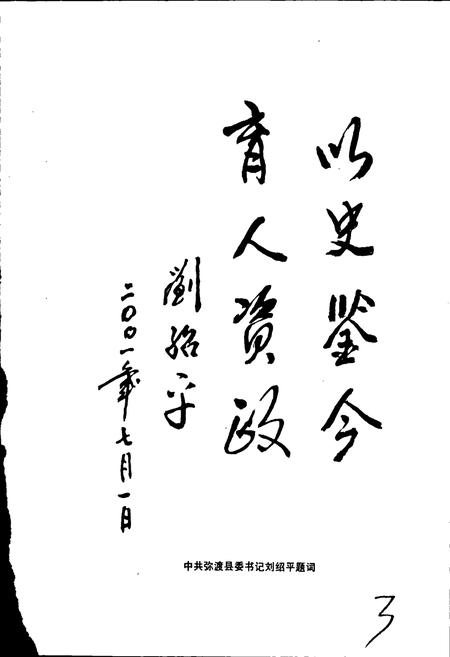 以史鉴今
育人資政
劉绍平
二〇〇一年七月一日
中共弥渡县委书记刘绍平题词
3